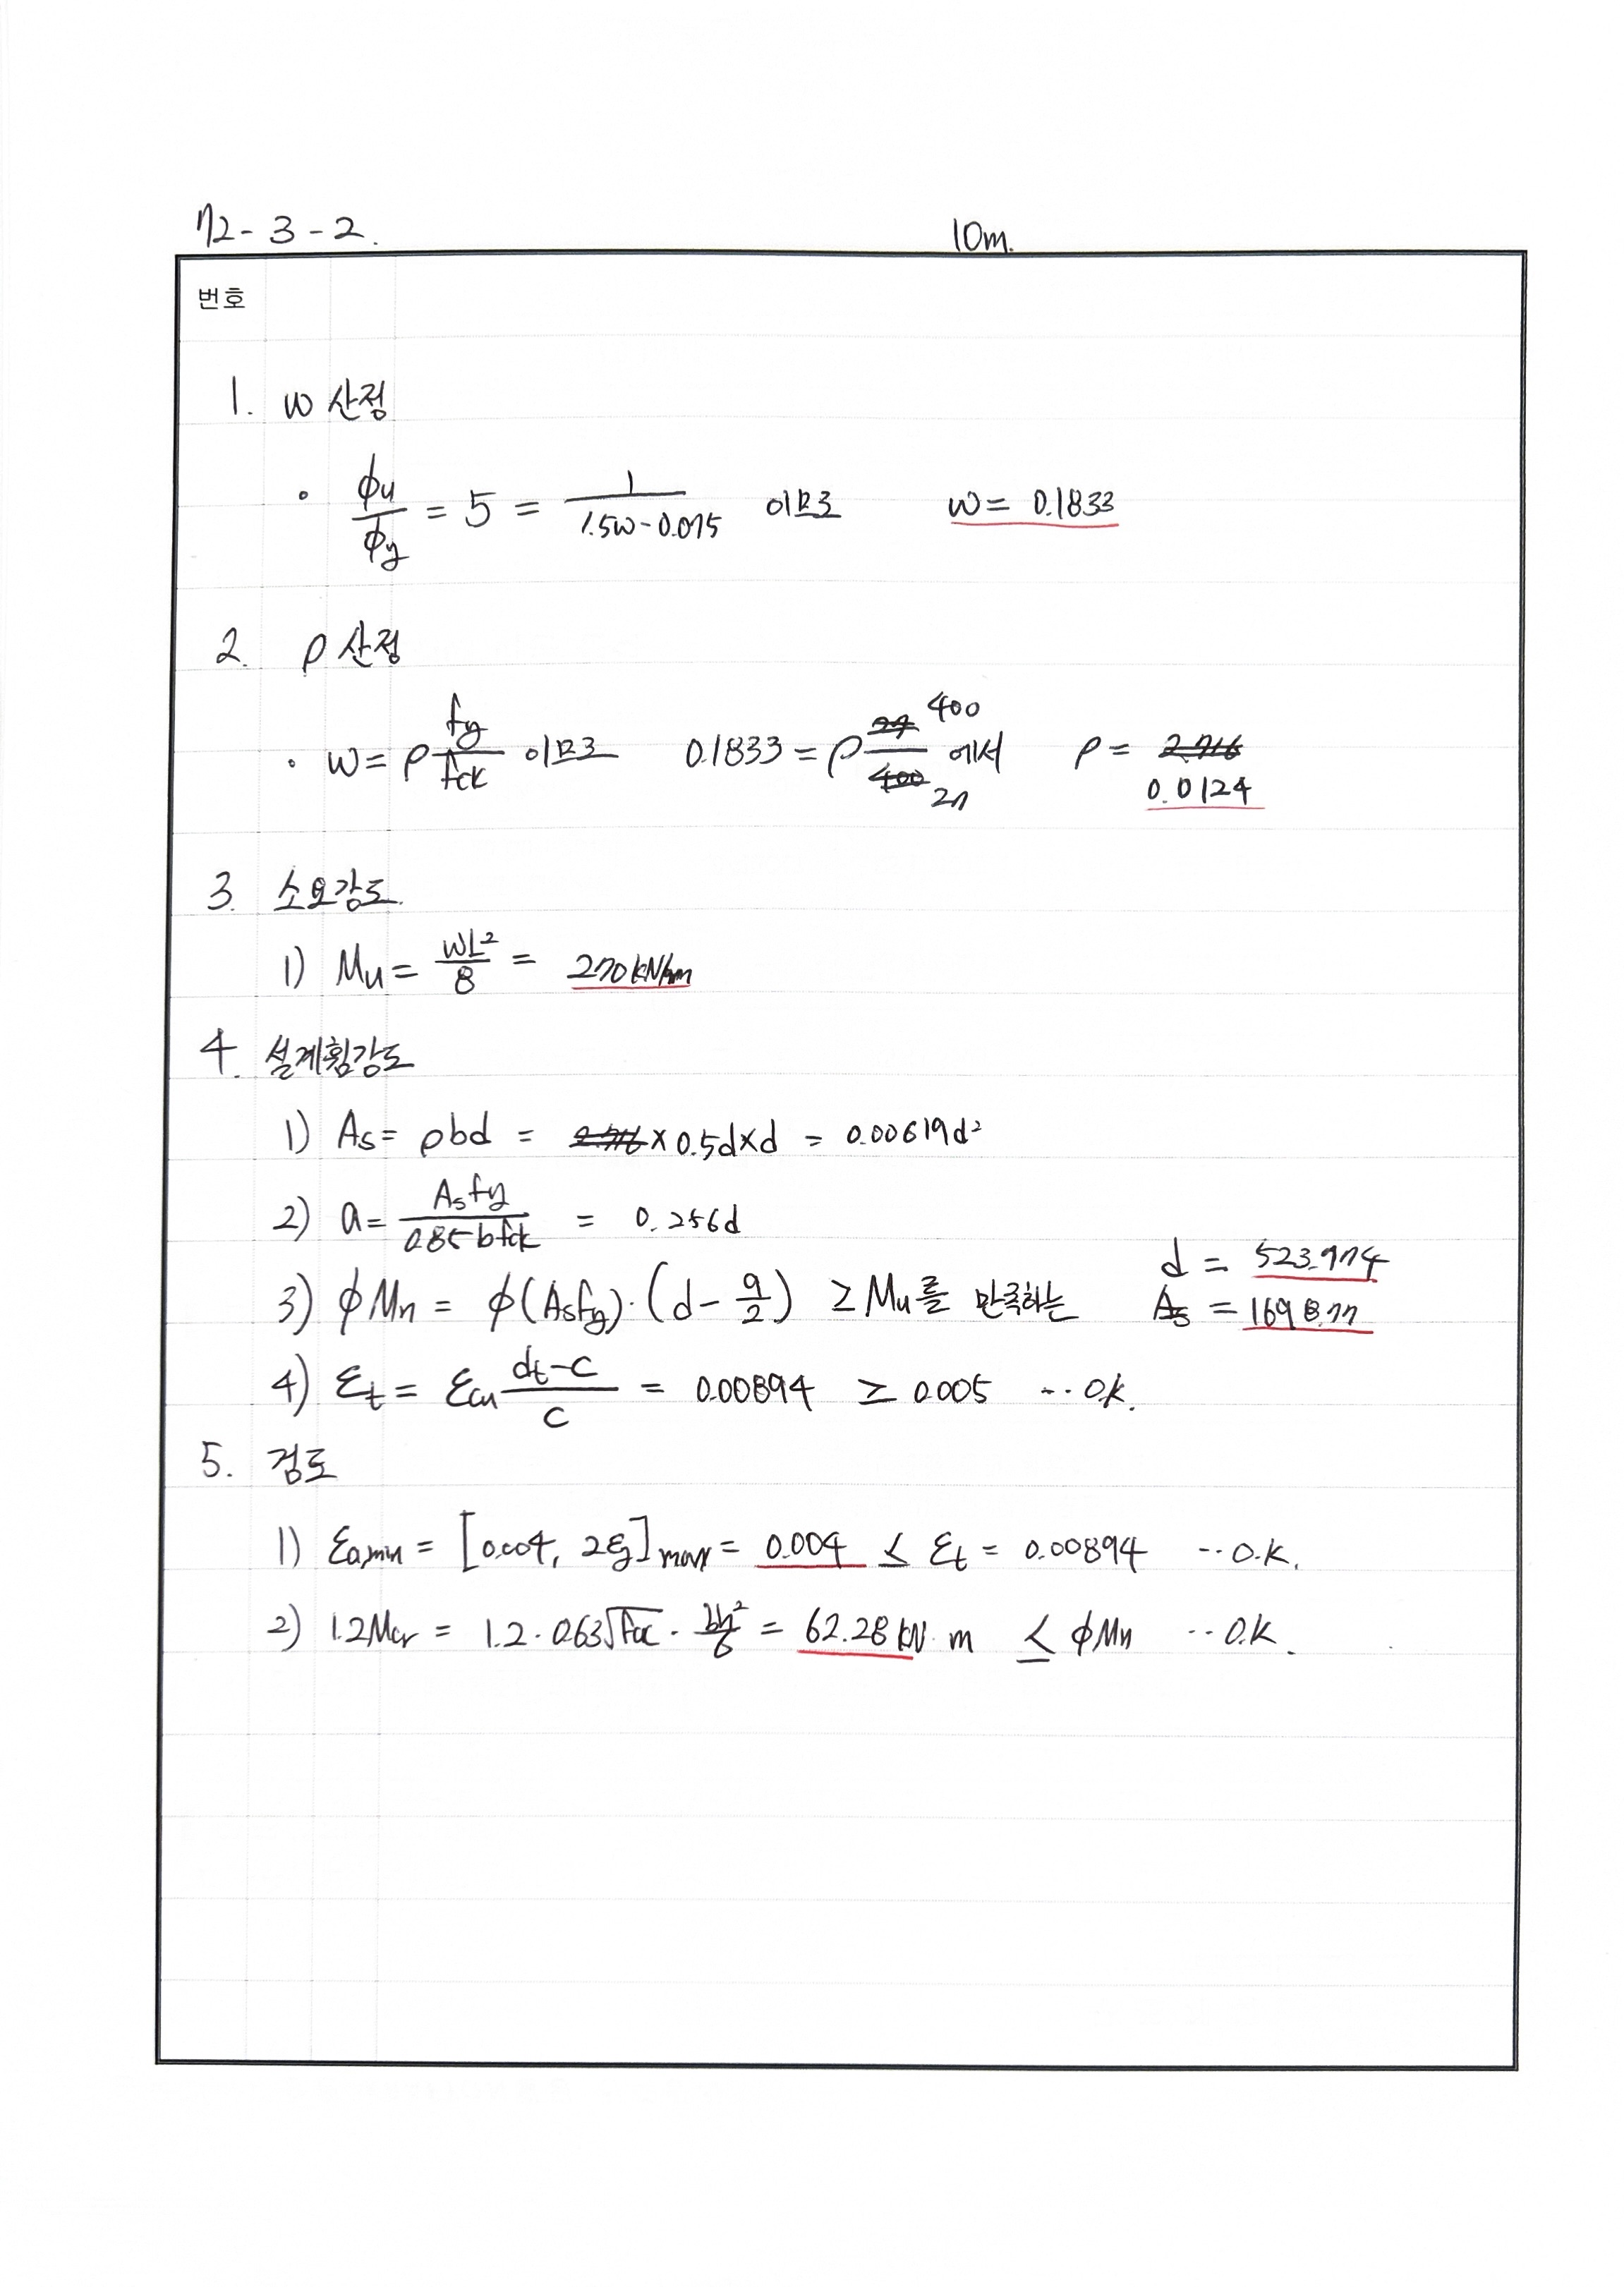 72-3-2.
10m.
번호
1. w 산정
• ϕu/ϕy = 5 = 1/(1.5w-0.075) 이므로 w = 0.1833
2. ρ 산정
• w = ρ fy/fck 이므로 0.1833 = ρ 400/27 에서 ρ = 0.0124
3. 소요강도.
1) Mu = wL²/8 = 270kN/m
4. 설계휨강도
1) As = ρbd = × 0.5d×d = 0.00619d²
2) a = Asfy/0.85bfck = 0.256d
d = 523.974
3) ϕMn = ϕ(Asfy)·(d-a/2) ≥ Mu를 만족하는 As = 1698.77
4) εt = εcu (dt-c)/c = 0.00894 ≥ 0.005 ... O.K.
5. 검토
1) εa,min = [0.004, 2εy]max = 0.004 ≤ εt = 0.00894 ... O.K.
2) 1.2Mcr = 1.2·0.63√fck·bh²/6 = 62.28kN·m ≤ ϕMn ... O.K.